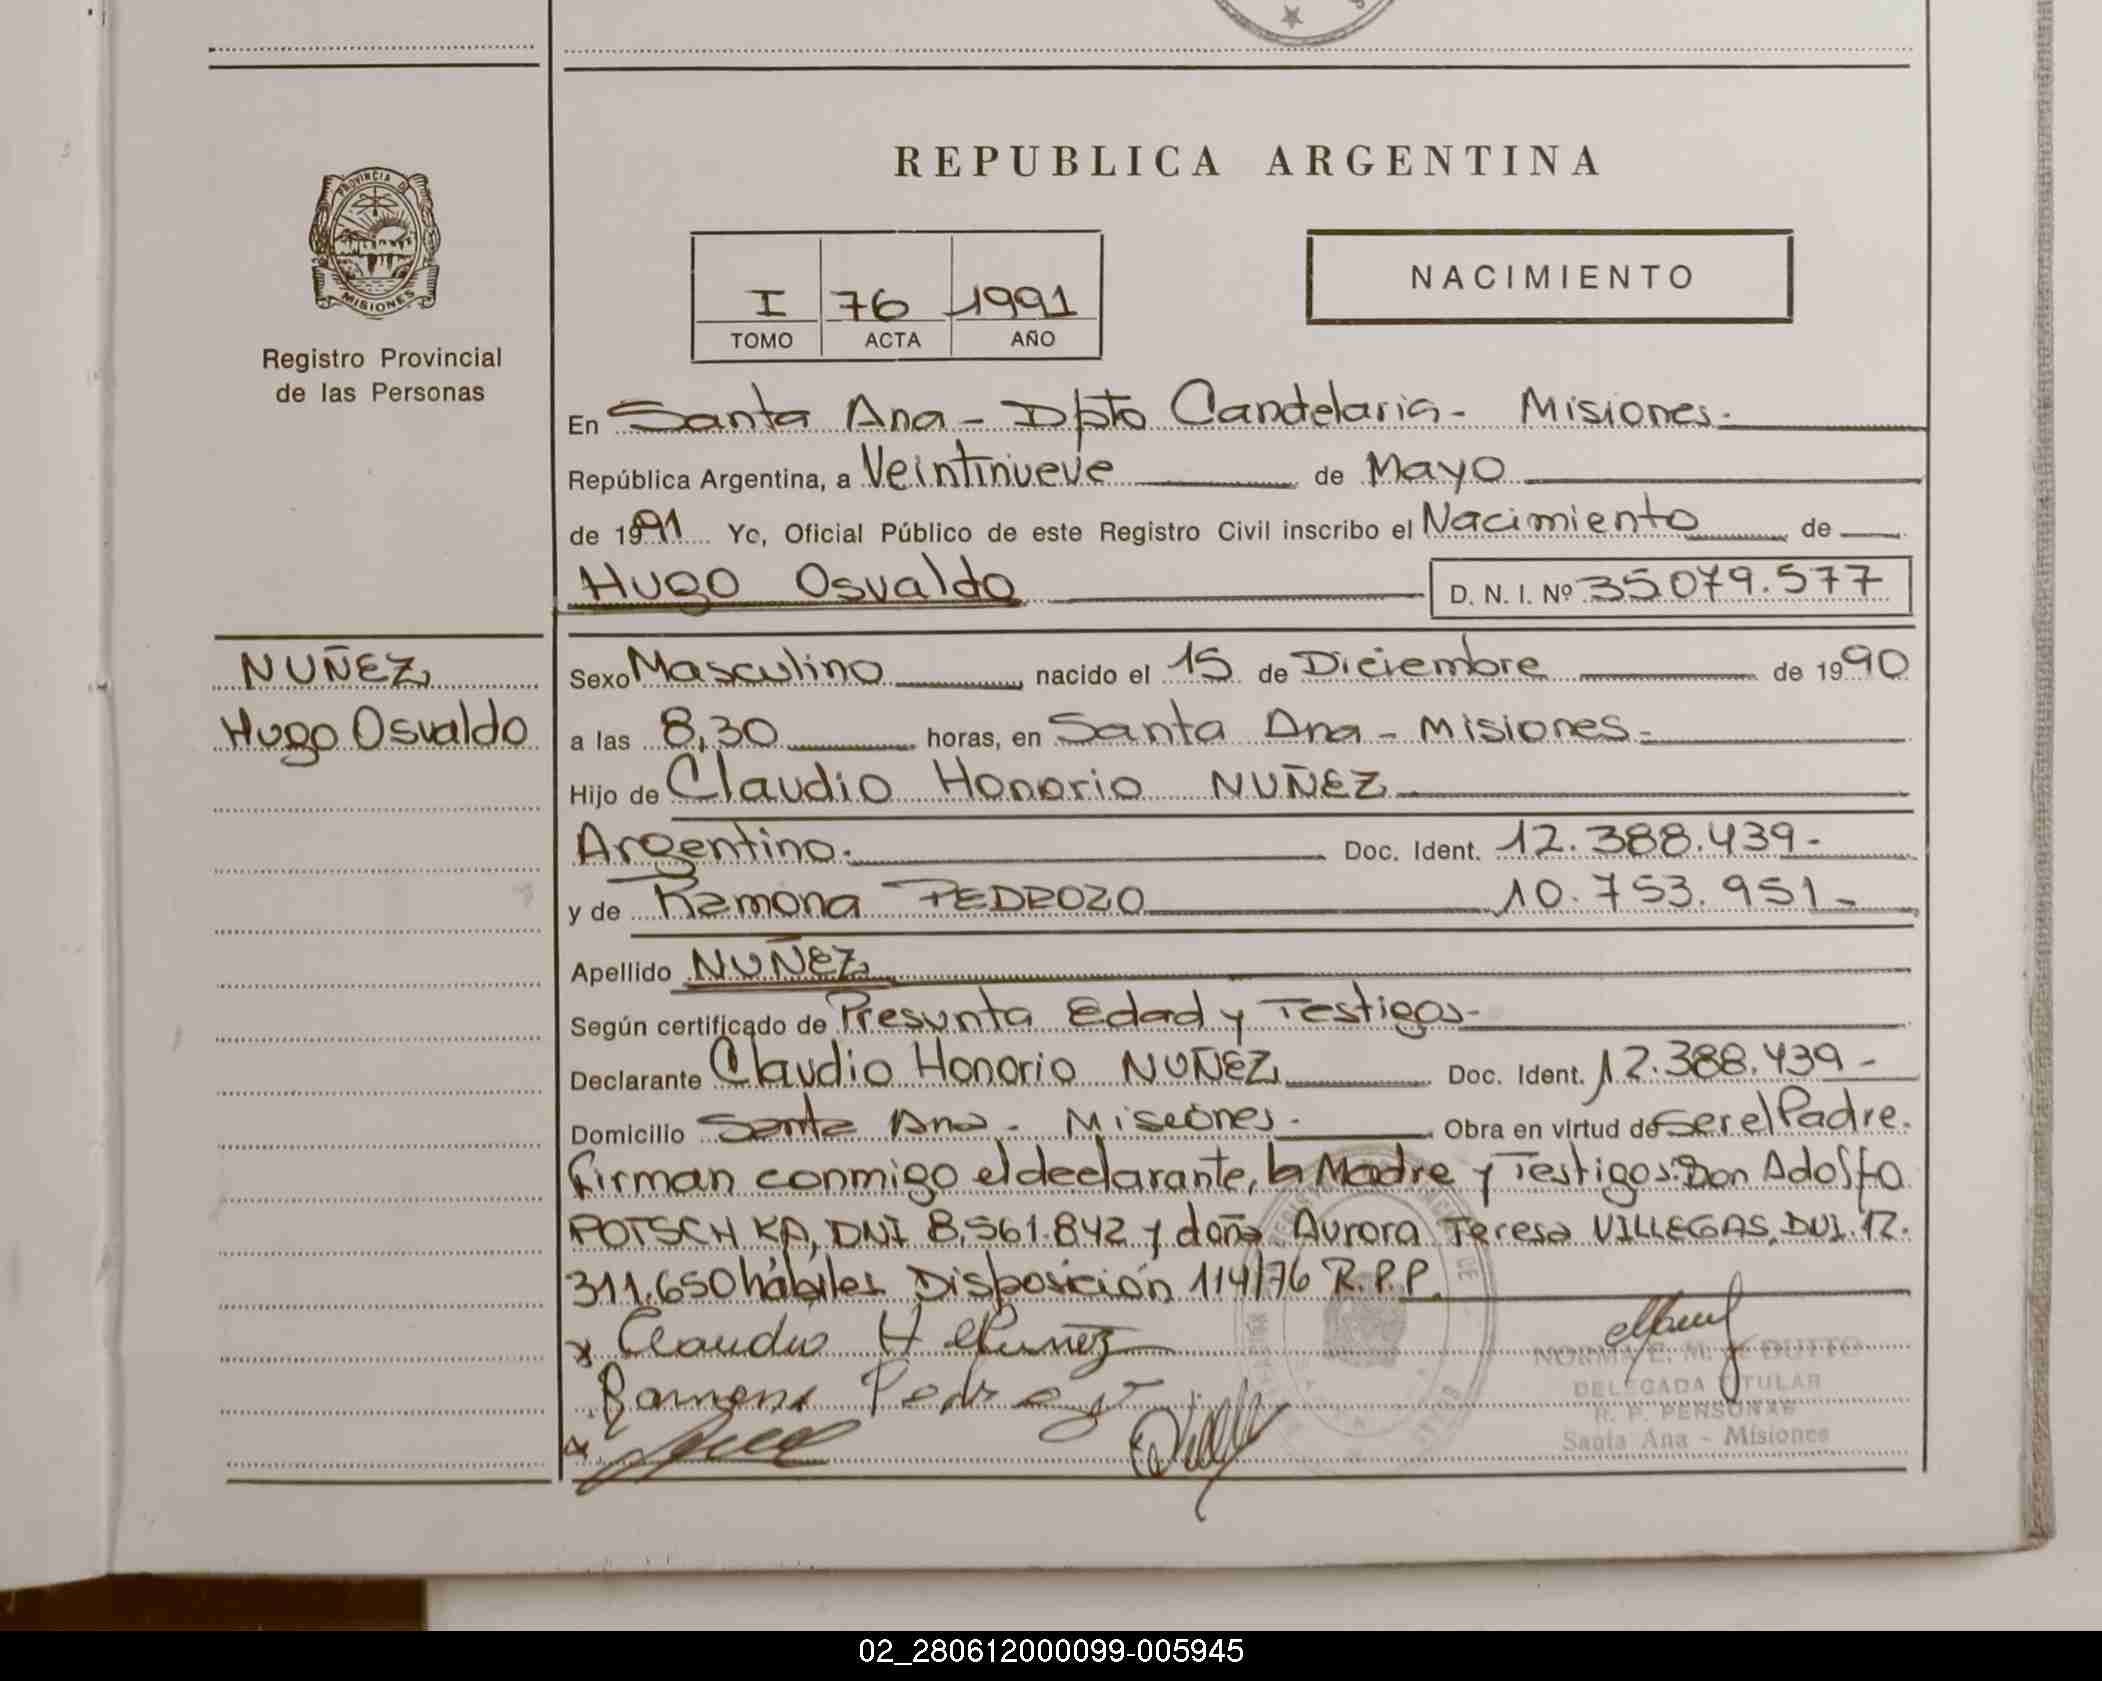 REPUBLICA ARGENTINA
PROVINCIA DE
MISIONES
Registro Provincial
de las Personas
I 76 1991
TOMO ACTA AÑO
NACIMIENTO
En Santa Ana - Dpto Candelaria - Misiones.
República Argentina, a Veintinueve de Mayo
de 1991 Yo, Oficial Público de este Registro Civil inscribo el Nacimiento de
Hugo Osvaldo D. N. I. Nº 35.079.577
NUÑEZ
Hugo Osvaldo
Sexo Masculino nacido el 15 de Diciembre de 1990
a las 8,30 horas, en Santa Ana - Misiones.
Hijo de Claudio Honorio NUÑEZ
Argentino. Doc. Ident. 12.388.439-
y de Ramona PEDROZO 10.753.951-
Apellido NUÑEZ
Según certificado de Presunta Edad y Testigos-
Declarante Claudio Honorio NUÑEZ Doc. Ident. 12.388.439-
Domicilio Santa Ana - Misiones. Obra en virtud de Ser el Padre.
Firman conmigo el declarante, la Madre y Testigos: Don Adolfo
POTSCHKA, DNI 8.561.842 y doña Aurora Teresa VILLEGAS, DNI. 12.
311.650 hábiles Disposición 114/76 R.P.P.
Claudio H Nuñez
Ramona Pedrozo
NORMA E. M. de DUTTO
DELEGADA TITULAR
R. P. PERSONAS
Santa Ana - Misiones
02_280612000099-005945